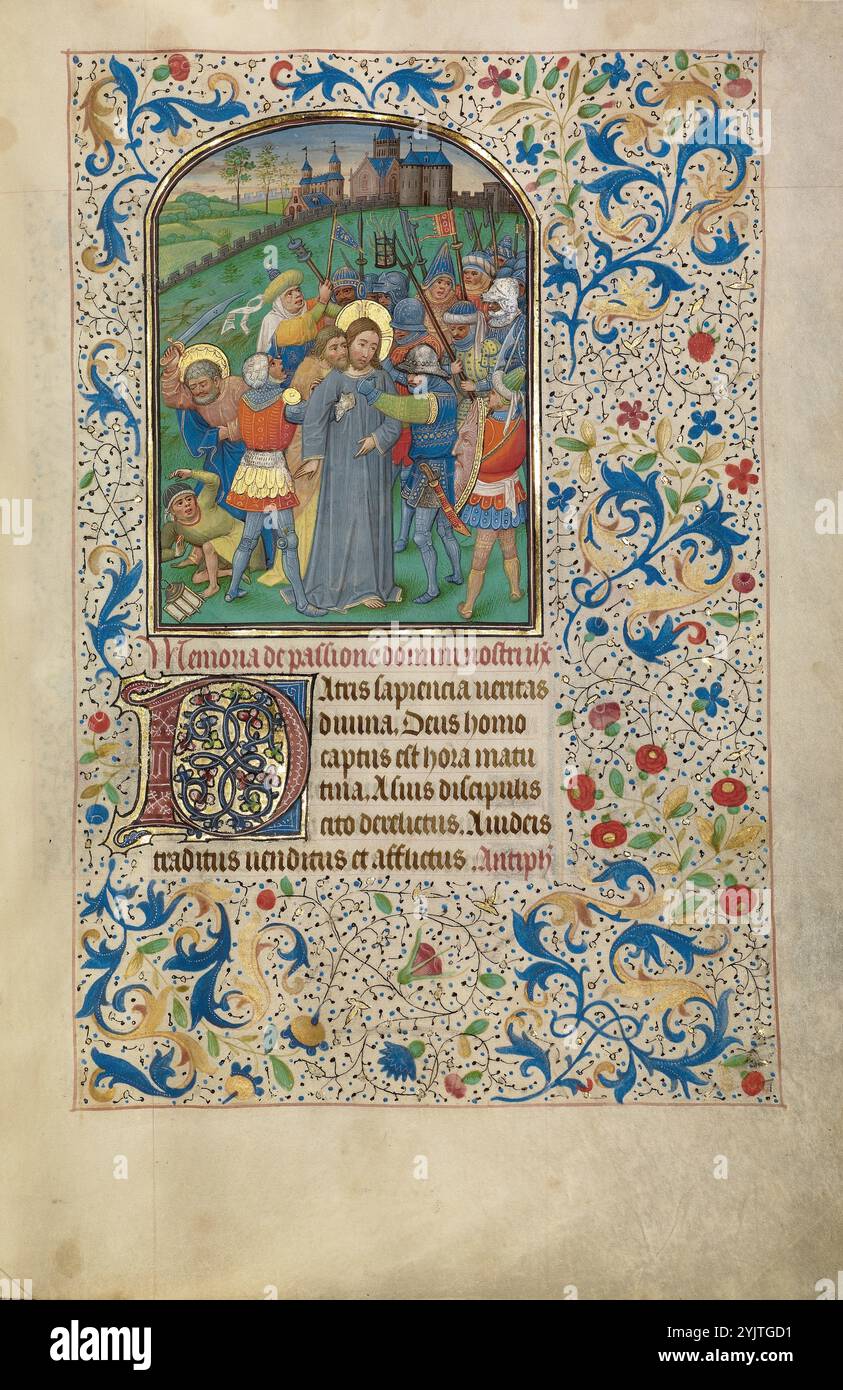 Memoria de passione domini nostri ihx
PAtris sapiencia ueritas
diuina, Deus homo
captus est hora matu
tina, A suis discipulis
cito derelictus. A iudeis
traditus uenditus et afflictus. Antiph
alamy
Image ID: 2YJTGD1
www.alamy.com